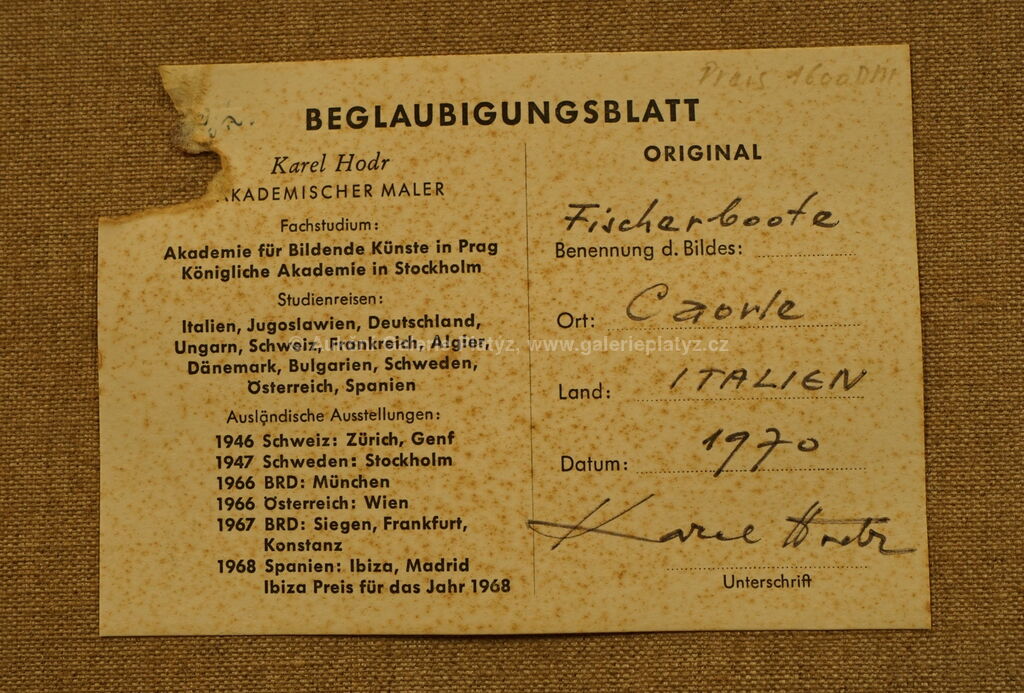 Preis 1600 DM
BEGLAUBIGUNGSBLATT
Karel Hodr
AKADEMISCHER MALER
Fachstudium:
Akademie für Bildende Künste in Prag
Königliche Akademie in Stockholm
Studienreisen:
Italien, Jugoslawien, Deutschland,
Ungarn, Schweiz, Frankreich, Algier,
Dänemark, Bulgarien, Schweden,
Österreich, Spanien
Ausländische Ausstellungen:
1946 Schweiz: Zürich, Genf
1947 Schweden: Stockholm
1966 BRD: München
1966 Österreich: Wien
1967 BRD: Siegen, Frankfurt,
Konstanz
1968 Spanien: Ibiza, Madrid
Ibiza Preis für das Jahr 1968
ORIGINAL
Fischerboote
Benennung d. Bildes:
Ort: Caorle
Land: ITALIEN
Datum: 1970
Karel Hodr
Unterschrift
www.galerieplatyz.cz